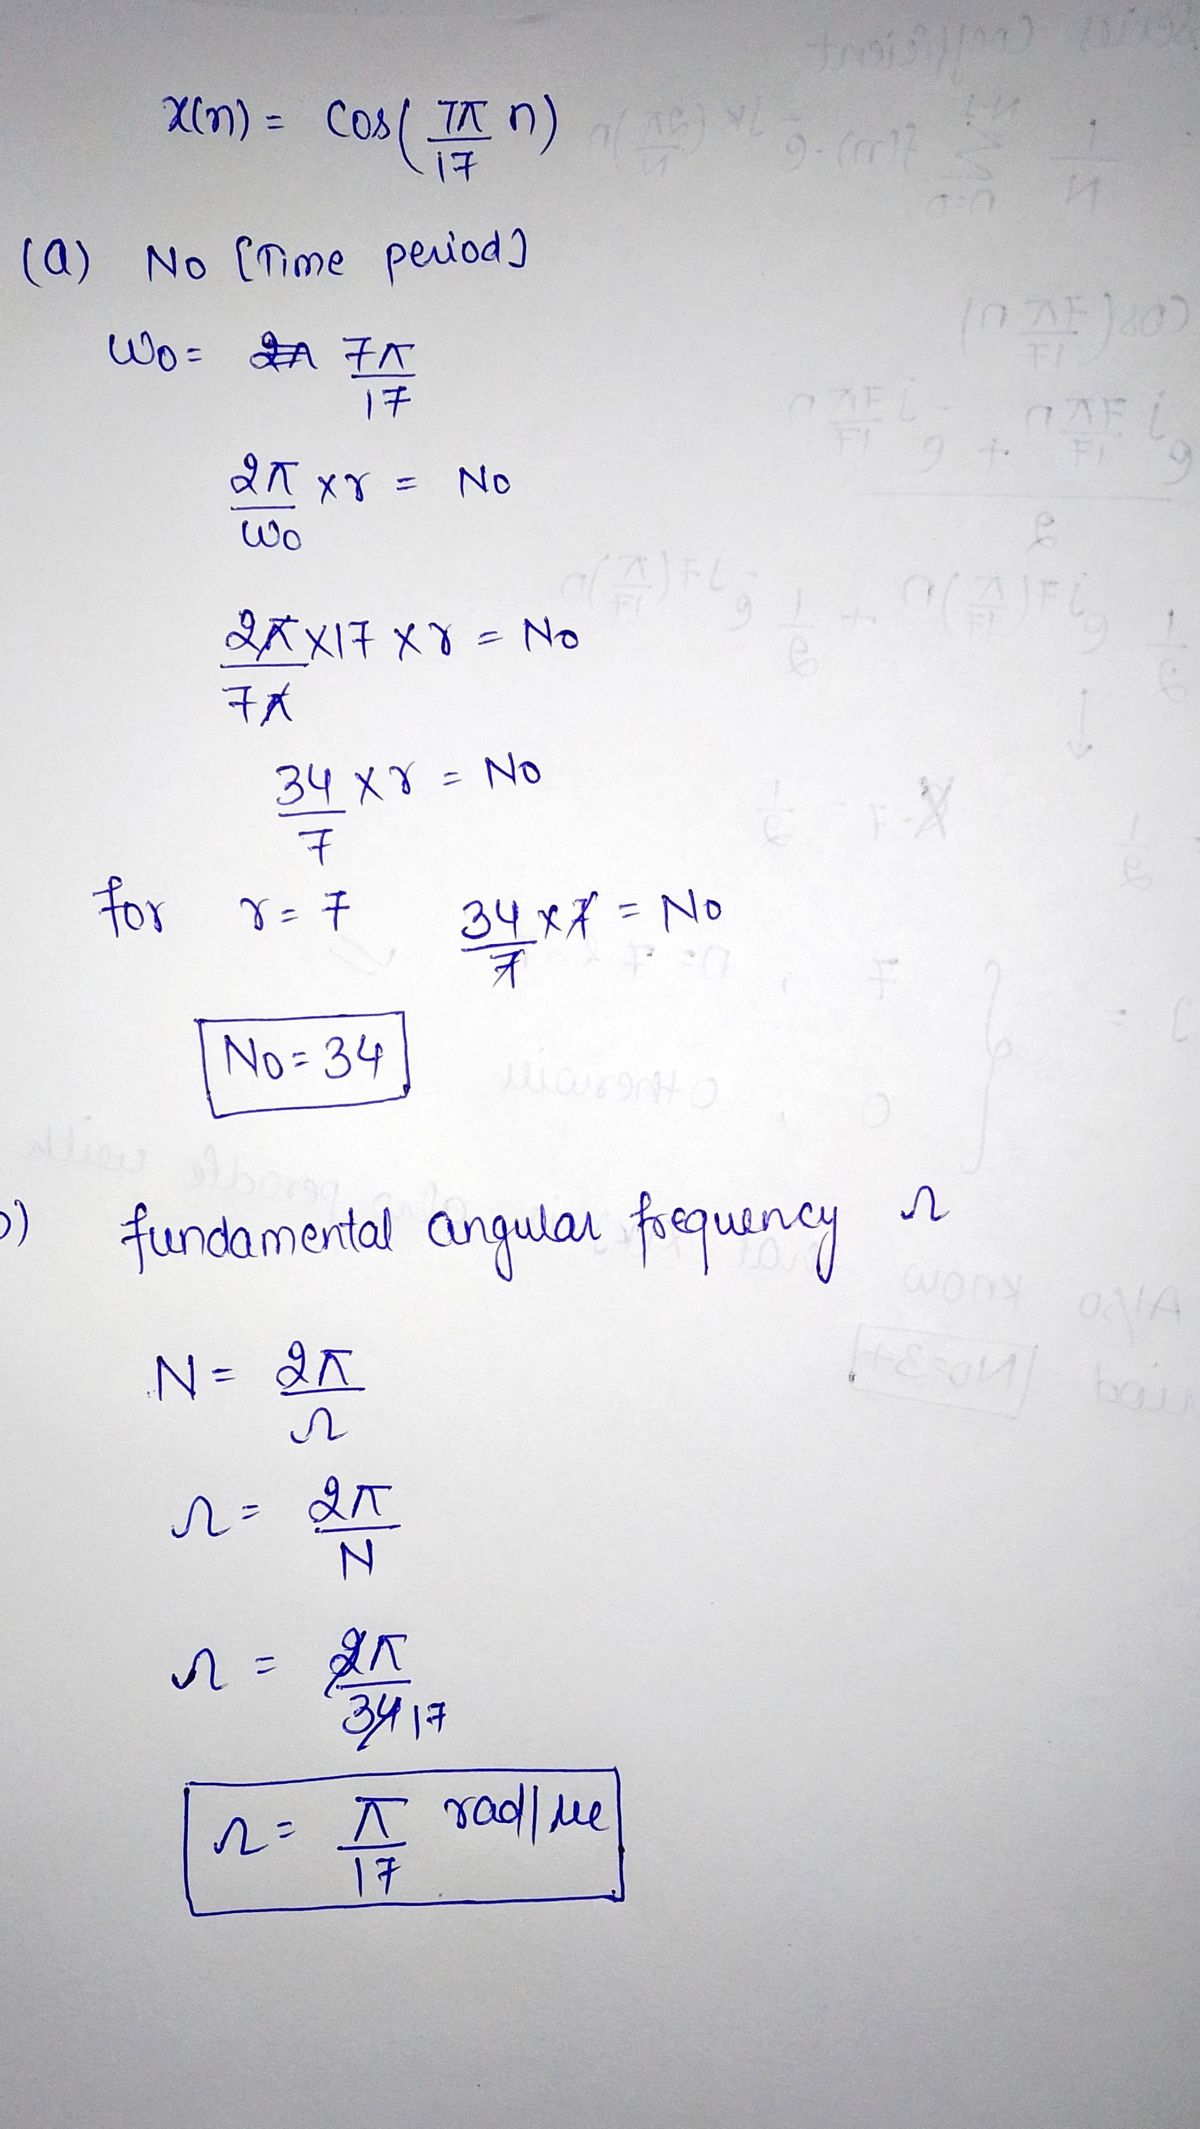 x(n) = Cos(7π/17 n)
(a) No [Time period]
ω0 = 7π/17
2π/ω0 × r = No
2π/7π × 17 × r = No
34/7 × r = No
for r = 7 34/7 × 7 = No
No = 34
b) fundamental angular frequency Ω
N = 2π/Ω
Ω = 2π/N
Ω = 2π/34 17
Ω = π/17 rad/sec